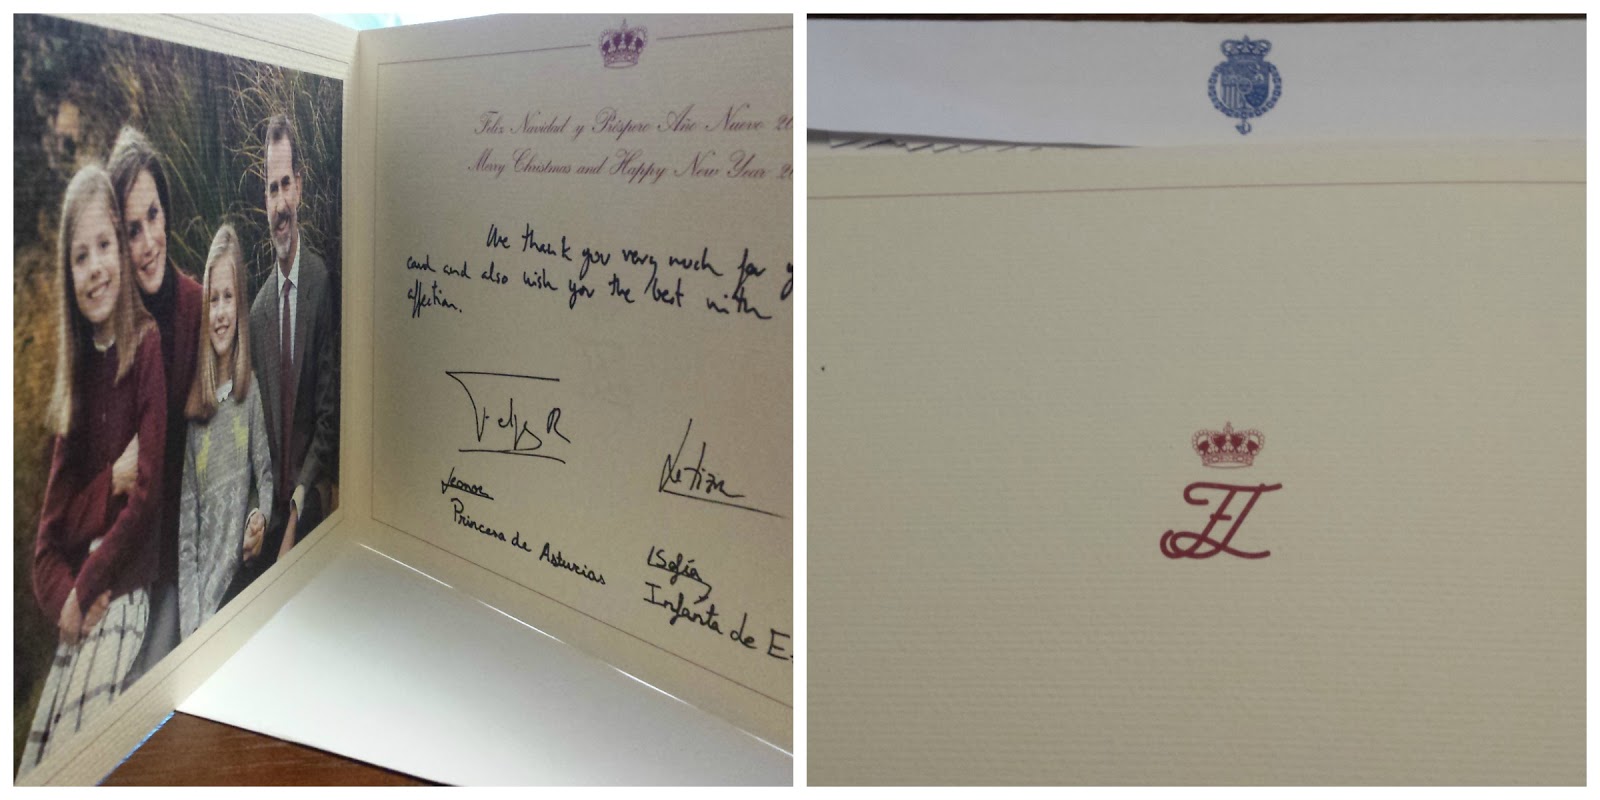 Feliz Navidad y Próspero Año Nuevo 20
Merry Christmas and Happy New Year 20
We thank you very much for y
card and also wish you the best with
affection.
Felipe R
Letizia
Leonor
Princesa de Asturias
Sofía
Infanta de E
FL